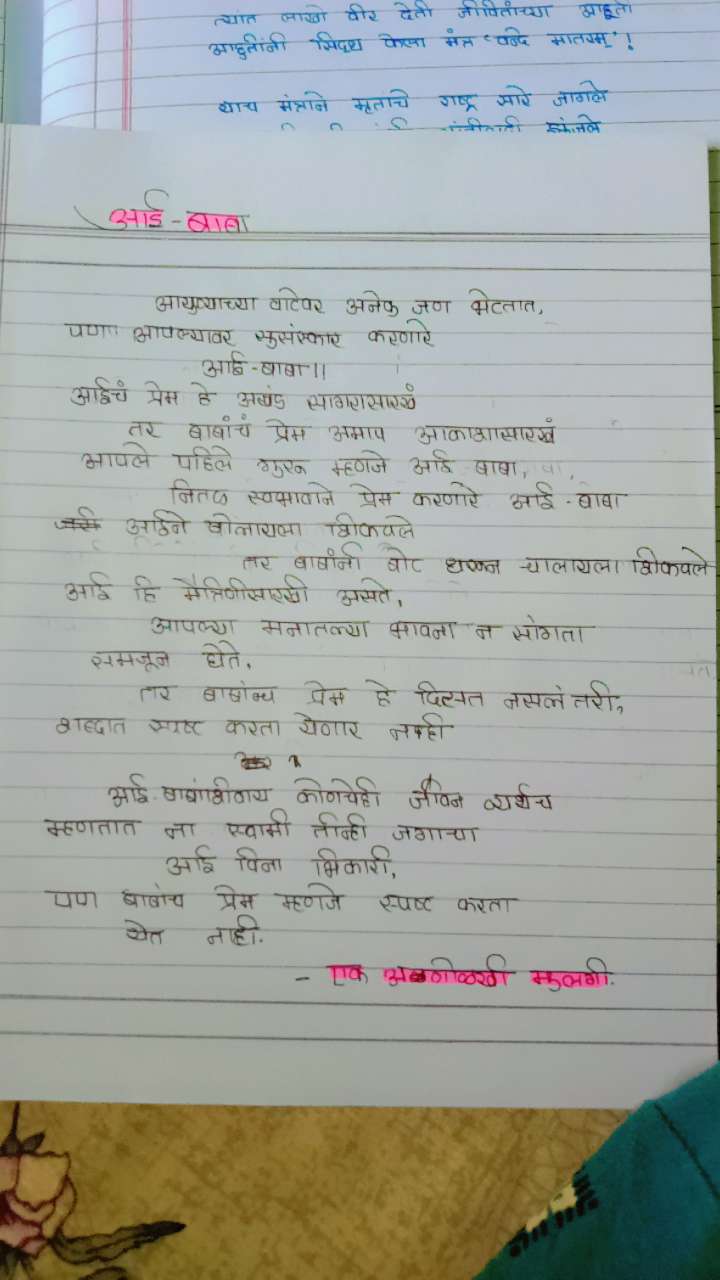 त्यात लाखो वीर देती जीवितांच्या आहूती
आहुतींनी सिद्ध केला मंत्र 'वन्दे मातरम्'!
याच मंत्राने मृतांचे राष्ट्र सारे जागले
आई - बाबा
आयुष्याच्या वाटेवर अनेक जण भेटतात,
पण आपल्यावर सुसंस्कार करणारे
आई - बाबा॥
आईचं प्रेम हे अखंड सागरासारखं
तर बाबांचं प्रेम अमाप आकाशासारखं
आपले पहिले गुरू म्हणजे आई बाबा,
नितळ स्वभावाने प्रेम करणारे आई - बाबा
आईने बोलायला शिकवले
तर बाबांनी बोट धरून चालायला शिकवले
आई हि मैत्रिणीसारखी असते,
आपल्या मनातल्या भावना न सांगता
समजून घेते.
तर बाबांच प्रेम हे दिसत नसलं तरी,
शब्दात स्पष्ट करता येणार नाही
आई-बाबांशिवाय कोणचेही जीवन व्यर्थच
म्हणतात ना स्वामी तीन्ही जगाचा
आई विना भिकारी,
पण बाबांच प्रेम म्हणजे स्पष्ट करता
येत नाही.
- एक अनोळखी मुलगी.